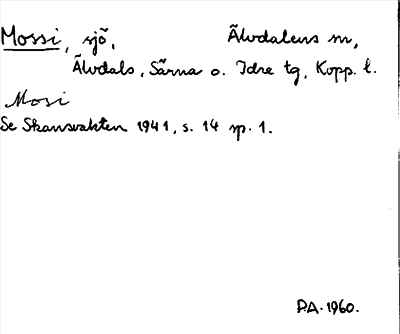 Mossi, sjö, Älvdalens m,
Älvdals, Särna o. Idre tg, Kopp. l.
Mosi
Se Skansvakten 1941, s. 14 sp. 1.
P.A. 1960.